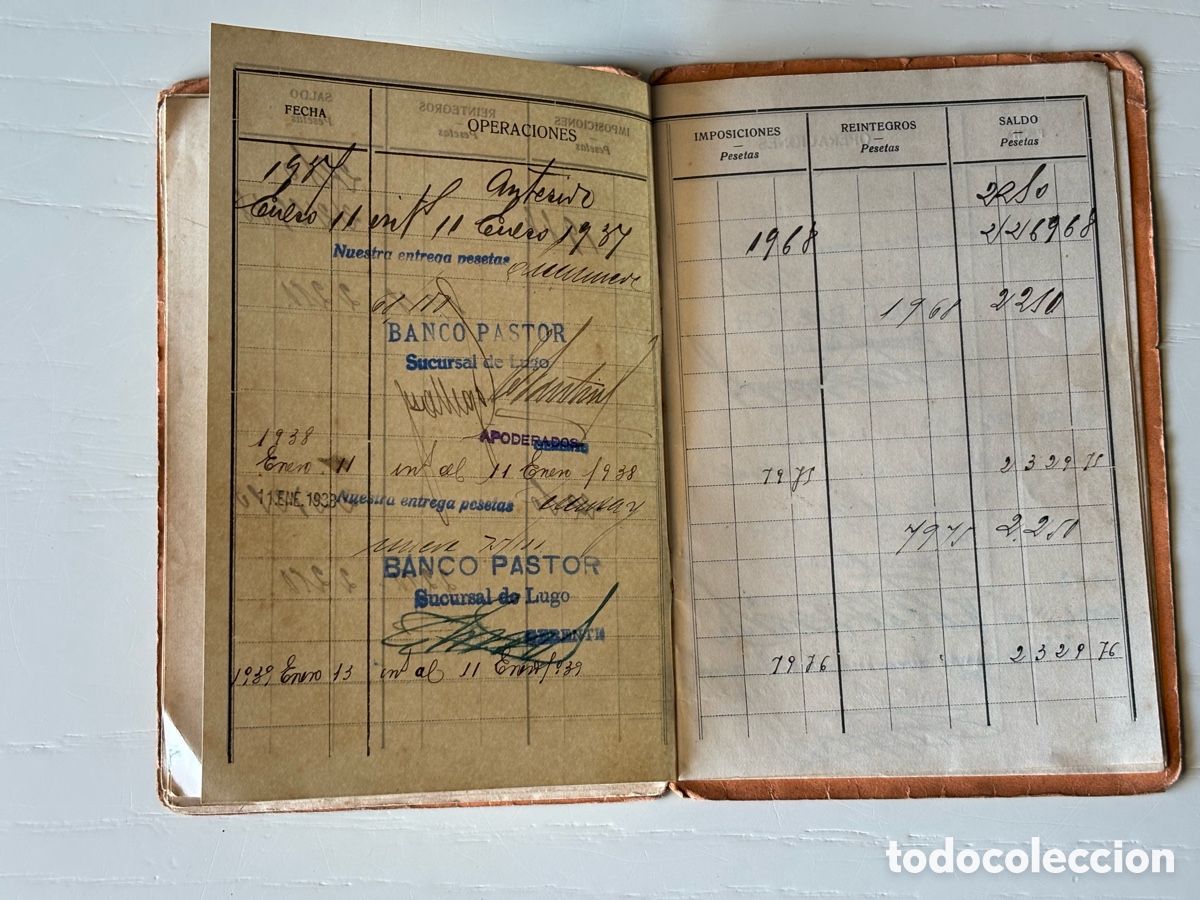 FECHA OPERACIONES IMPOSICIONES Pesetas REINTEGROS Pesetas SALDO Pesetas
1937 Anterior 2250
Enero 11 int/s 11 Enero 1937 1968 2/226968
Nuestra entrega pesetas
1968 2250
BANCO PASTOR
Sucursal de Lugo
APODERADOS
1938
Enero 11 int al 11 Enero/1938 7975 232975
11 ENE. 1938 Nuestra entrega pesetas
7975 2.250
BANCO PASTOR
Sucursal de Lugo
GERENTE
1939 Enero 13 int al 11 Enero/1939 7976 232976
todocoleccion